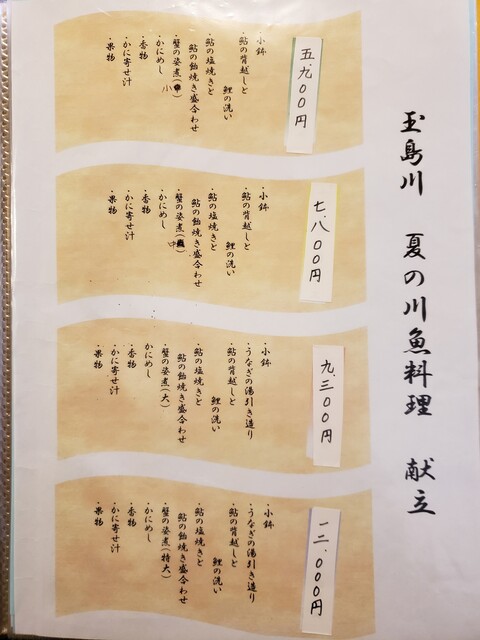 玉島川 夏の川魚料理 献立
五、九〇〇円
・小鉢
・鮎の背越しと
鯉の洗い
・鮎の塩焼きと
鮎の飴焼き盛合わせ
・蟹の姿煮(小)
・かにめし
・香物
・かに寄せ汁
・果物
七、八〇〇円
・小鉢
・鮎の背越しと
鯉の洗い
・鮎の塩焼きと
鮎の飴焼き盛合わせ
・蟹の姿煮(中)
・かにめし
・香物
・かに寄せ汁
・果物
九、三〇〇円
・小鉢
・うなぎの湯引き造り
・鮎の背越しと
鯉の洗い
・鮎の塩焼きと
鮎の飴焼き盛合わせ
・蟹の姿煮(大)
・かにめし
・香物
・かに寄せ汁
・果物
一二、〇〇〇円
・小鉢
・うなぎの湯引き造り
・鮎の背越しと
鯉の洗い
・鮎の塩焼きと
鮎の飴焼き盛合わせ
・蟹の姿煮(特大)
・かにめし
・香物
・かに寄せ汁
・果物